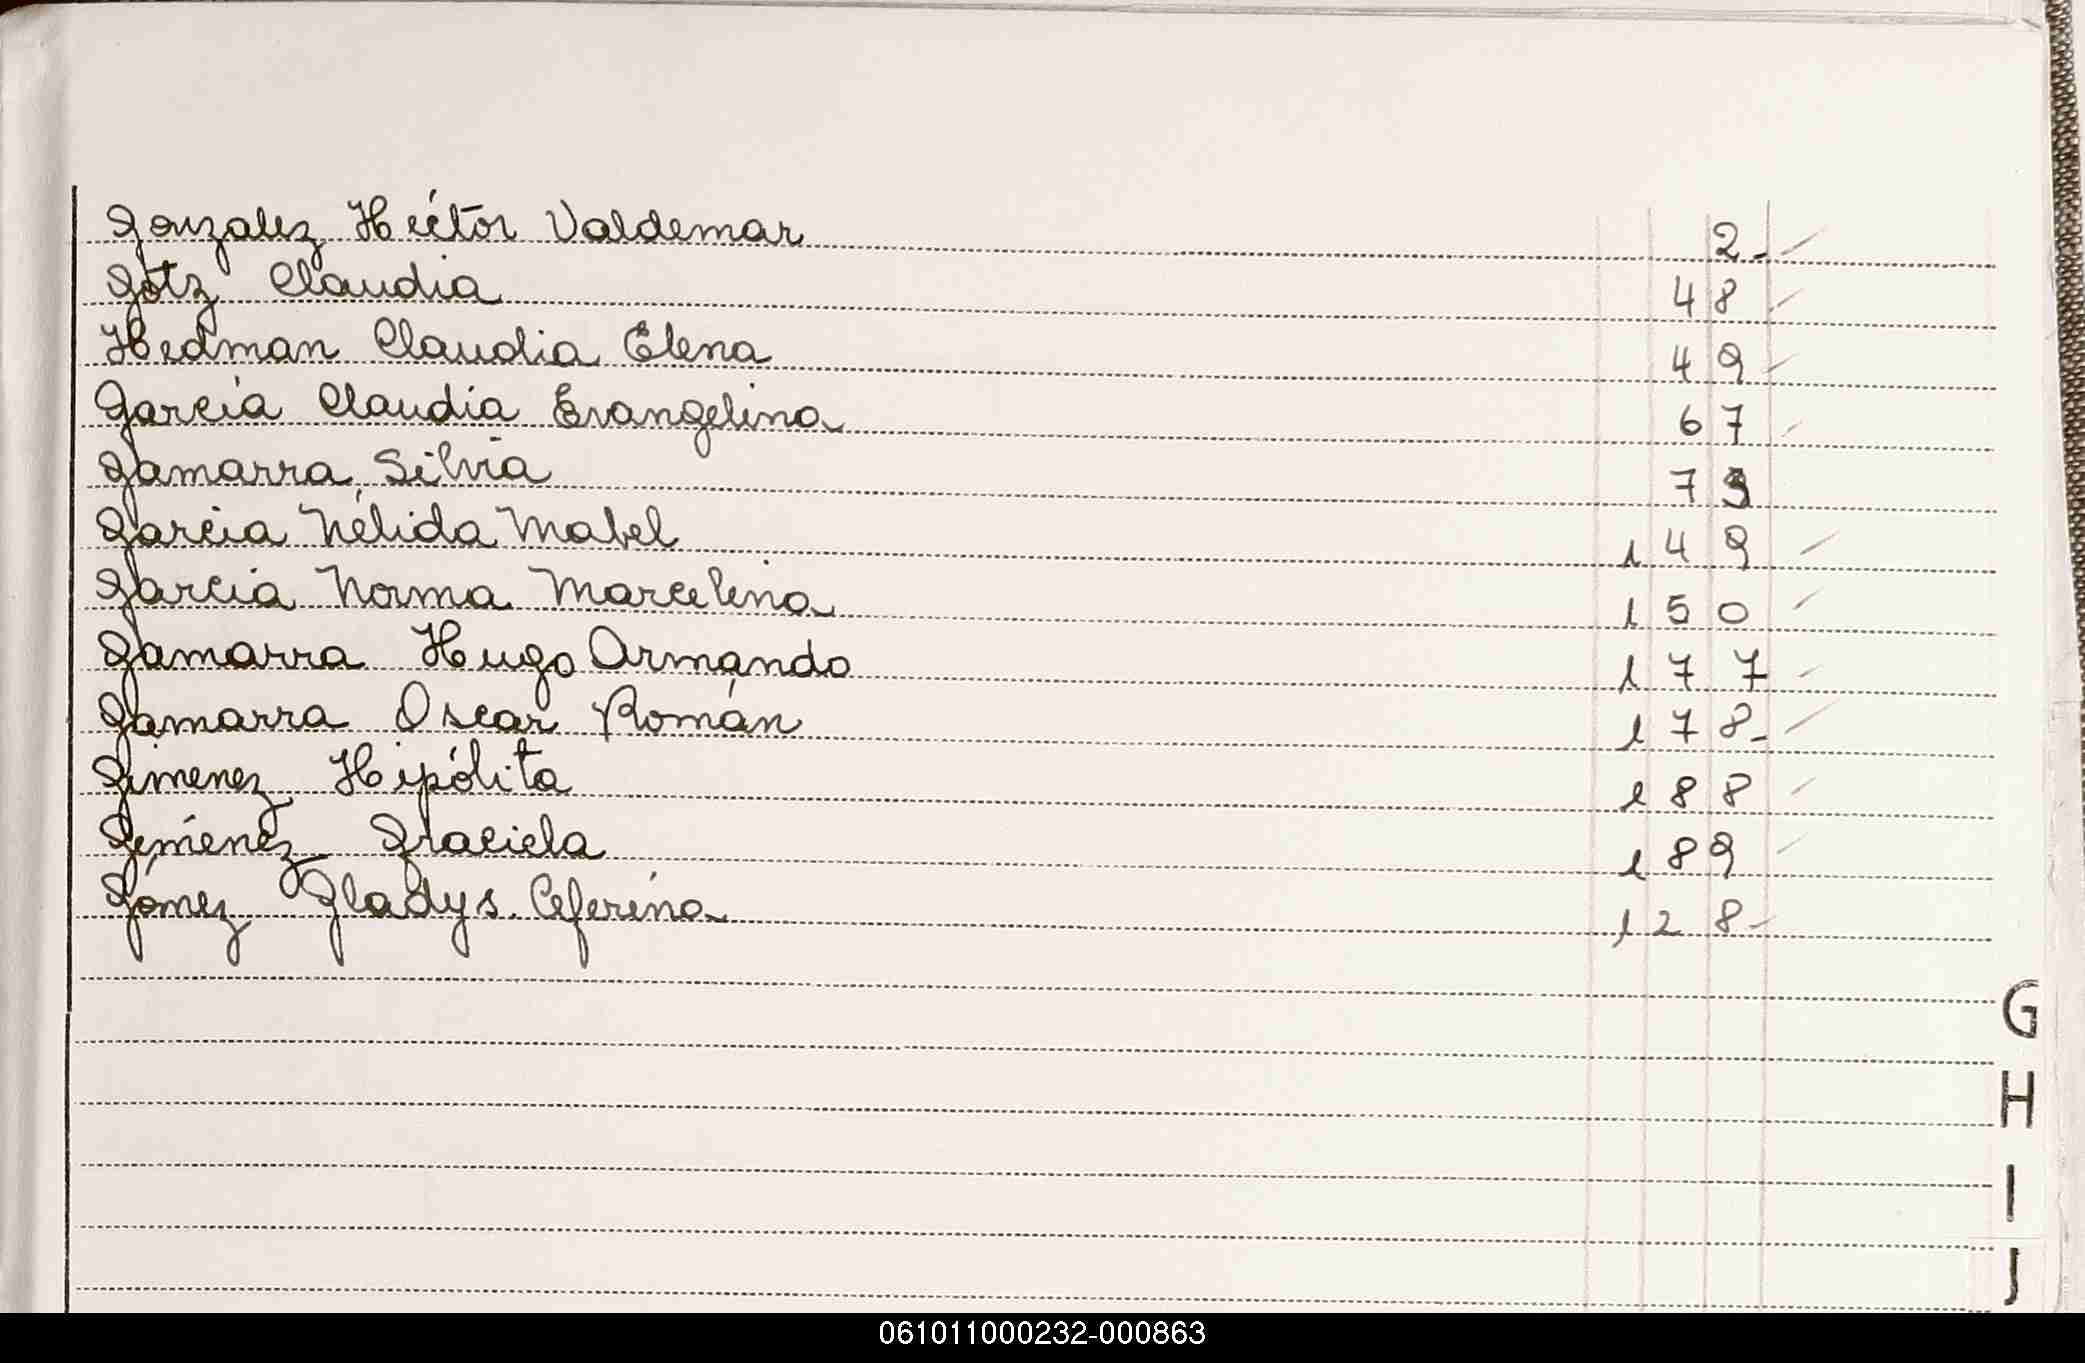 Gonzalez Héctor Valdemar 2-
Götz Claudia 48
Hedman Claudia Elena 49
García Claudia Evangelina 67
Gamarra Silvia 79
Garcia Nélida Mabel 149
Garcia Norma Marcelina 150
Gamarra Hugo Armando 177
Gamarra Oscar Román 178-
Gimenez Hipólita 188
Gimenez Graciela 189
Gómez Gladys Ceferina 128-
G
H
I
J
061011000232-000863